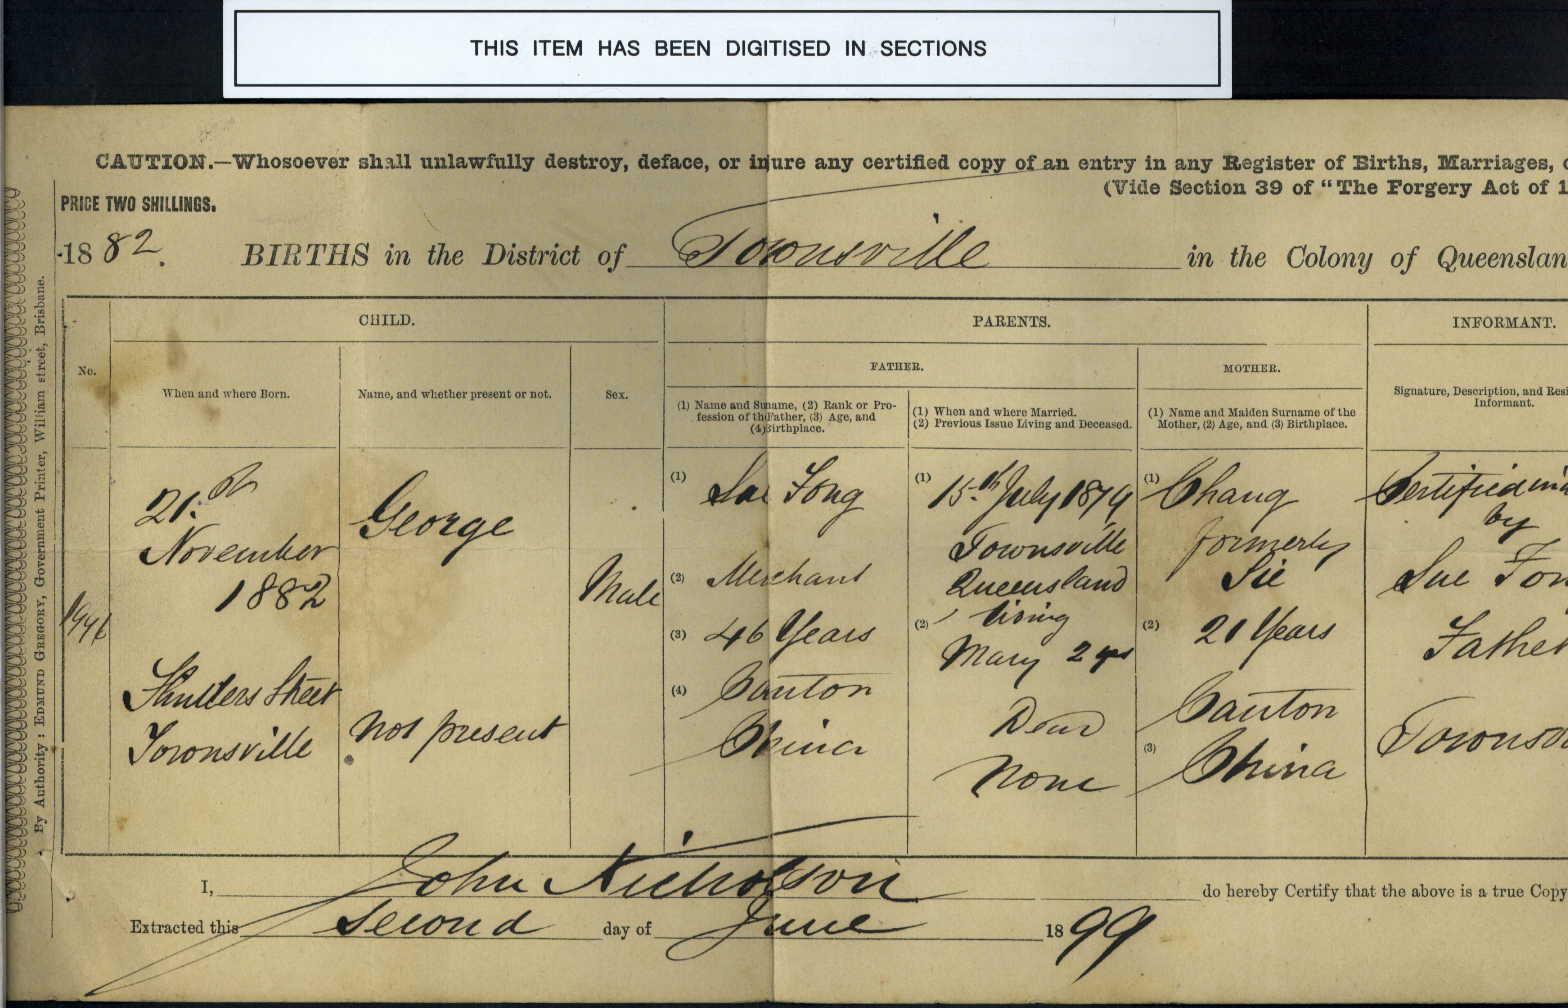 THIS ITEM HAS BEEN DIGITISED IN SECTIONS
CAUTION.—Whosoever shall unlawfully destroy, deface, or injure any certified copy of an entry in any Register of Births, Marriages,
(Vide Section 39 of "The Forgery Act of 1
PRICE TWO SHILLINGS.
1882. BIRTHS in the District of Townsville in the Colony of Queenslan
By Authority: EDMUND GREGORY, Government Printer, William street, Brisbane.
CHILD.
PARENTS.
INFORMANT.
No.
When and where Born.
Name, and whether present or not.
Sex.
FATHER.
MOTHER.
(1) Name and Surname, (2) Rank or Pro-
fession of the Father, (3) Age, and
(4) Birthplace.
(1) When and where Married.
(2) Previous Issue Living and Deceased.
(1) Name and Maiden Surname of the
Mother, (2) Age, and (3) Birthplace.
Signature, Description, and Resi
Informant.
1946
21st
November
1882
Flinders Street
Townsville
George
not present
Male
(1) Sue Fong
(2) Merchant
(3) 46 Years
(4) Canton
China
(1) 15th July 1879
Townsville
Queensland
(2) living
Mary 2 yrs
Dead
None
(1) Chang
formerly
Sie
(2) 21 Years
Canton
(3) China
Certified in
by
Sue Fon
Father
Townsv
I, John Nicholson do hereby Certify that the above is a true Copy
Extracted this second day of June 1899